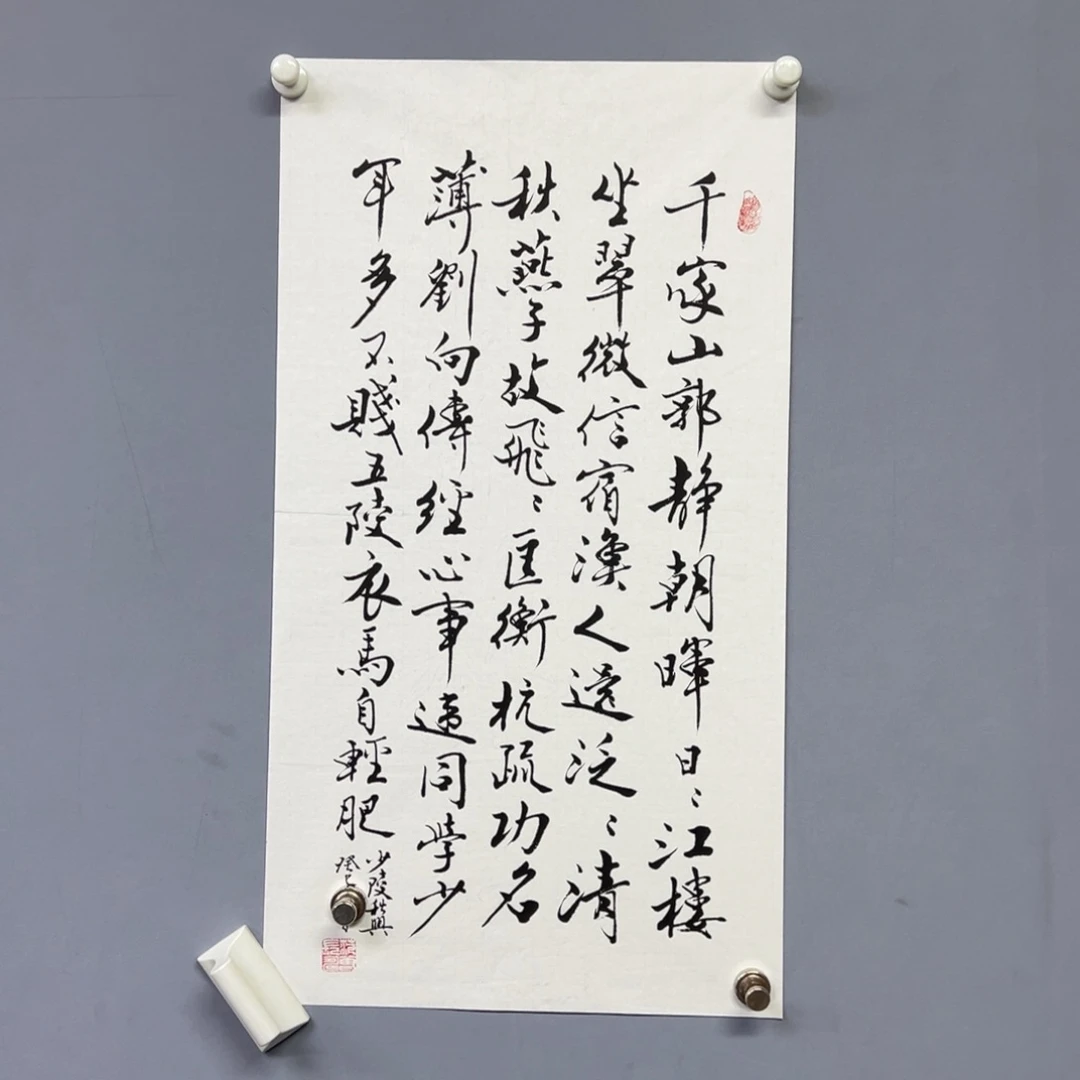 千家山郭静朝暉日〻江樓
坐翠微信宿漁人還泛〻清
秋燕子故飛〻匡衡杭疏功名
薄劉向傳經心事違同学少
年多不賤五陵衣馬自輕肥
少陵秋興
癸巳